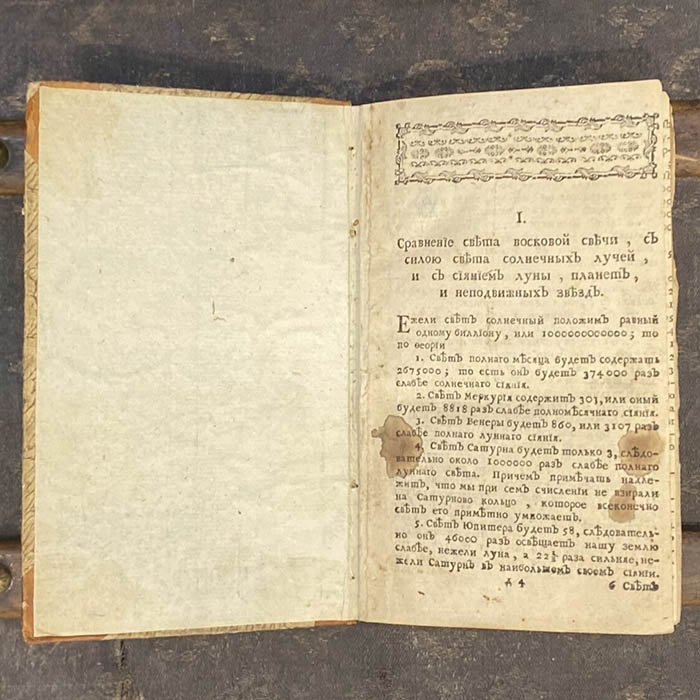 I.
Сравненіе свѣта восковой свѣчи , съ
силою свѣта солнечныхъ лучей ,
и съ сіяніемъ луны , планетъ ,
и неподвижныхъ звѣздъ.
Ежели свѣтъ солнечный положимъ равный
одному билліону, или 1000000000000; то
по ѳеоріи
1. Свѣтъ полнаго мѣсяца будетъ содержать
2675000; то есть онъ будетъ 374000 разъ
слабѣе солнечнаго сіянія.
2. Свѣтъ Меркурія содержитъ 303, или оный
будетъ 8818 разъ слабѣе полномѣсячнаго сіянія.
3. Свѣтъ Венеры будетъ 860, или 3107 разъ
слабѣе полнаго луннаго сіянія.
4. Свѣтъ Сатурна будетъ только 3, слѣдо-
вательно около 1000000 разъ слабѣе полнаго
луннаго свѣта. Причемъ примѣчать надле-
житъ, что мы при семъ счисленіи не взирали
на Сатурново кольцо , которое всеконечно
свѣтъ его примѣтно умножаетъ.
5. Свѣтъ Юпитера будетъ 58, слѣдователь-
но онъ 46000 разъ освѣщаетъ нашу землю
слабѣе, нежели луна, а 22½ раза сильняе, не-
жели Сатурнъ въ наибольшомъ своемъ сіяніи.
А 4
6 Свѣтъ